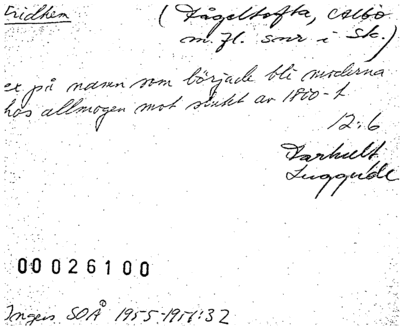 Fridhem
(Fågeltofta, Albo
m.fl. snr i Sk.)
ex på namn som började bli moderna
hos allmogen mot slutet av 1800-t.
12:6
Farhult
Luggude
00026100
Ingers SOÅ 1955-1956:32